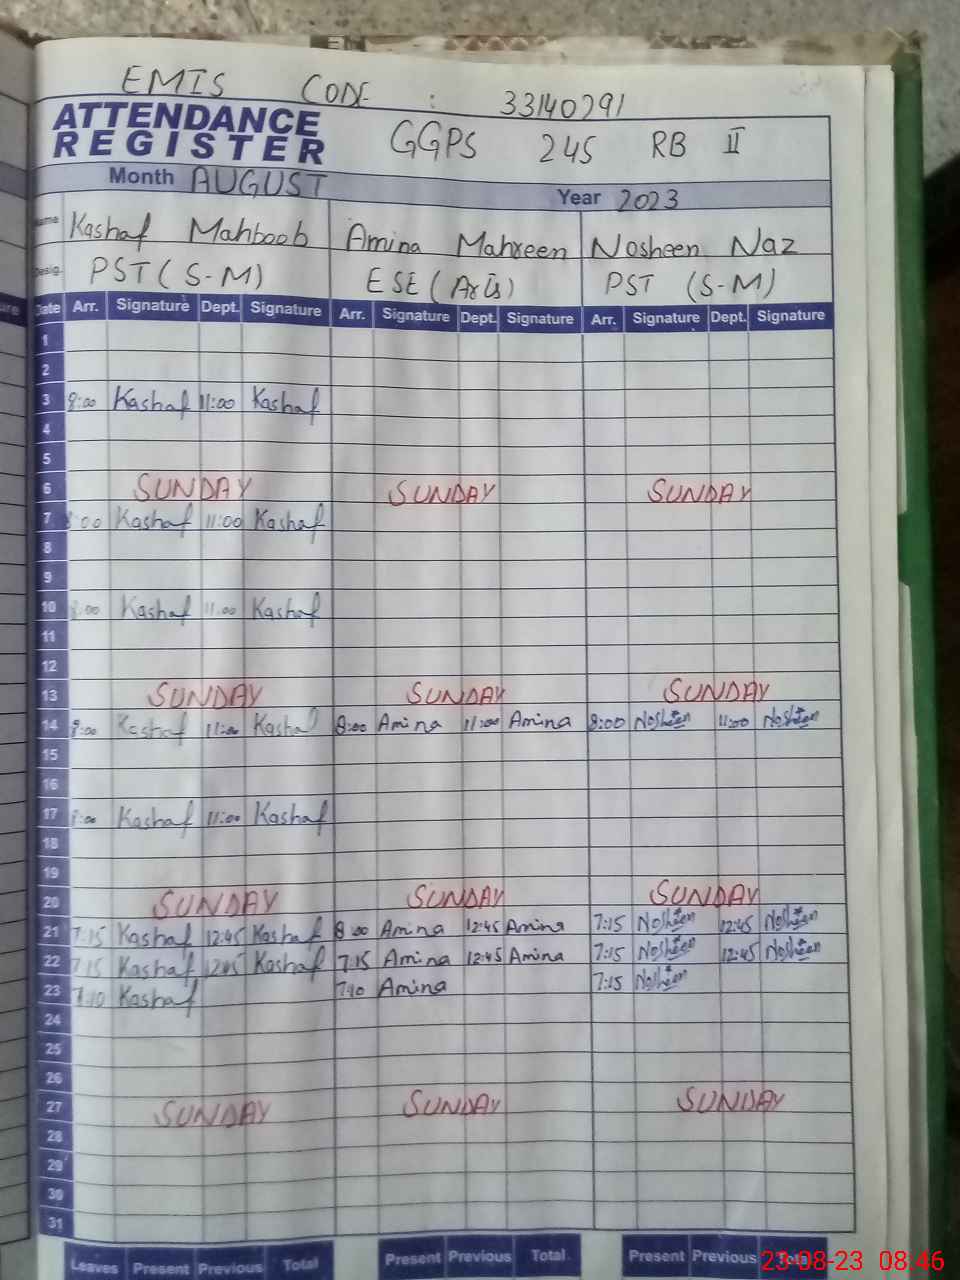 EMIS CODE : 33140291
ATTENDANCE REGISTER GGPS 245 RB II
Month AUGUST Year 2023
Name Kashaf Mahboob Amina Mahreen Nosheen Naz
Desig. PST (S-M) ESE (Arts) PST (S-M)
Date Arr. Signature Dept. Signature Arr. Signature Dept. Signature Arr. Signature Dept. Signature
1
2
3 8:00 Kashaf 11:00 Kashaf
4
5
6 SUNDAY SUNDAY SUNDAY
7 8:00 Kashaf 11:00 Kashaf
8
9
10 8:00 Kashaf 11:00 Kashaf
11
12
13 SUNDAY SUNDAY SUNDAY
14 8:00 Kashaf 11:00 Kashaf 8:00 Amina 11:00 Amina 8:00 Nosheen 11:00 Nosheen
15
16
17 8:00 Kashaf 11:00 Kashaf
18
19
20 SUNDAY SUNDAY SUNDAY
21 7:15 Kashaf 12:45 Kashaf 8:00 Amina 12:45 Amina 7:15 Nosheen 12:45 Nosheen
22 7:15 Kashaf 12:45 Kashaf 7:15 Amina 12:45 Amina 7:15 Nosheen 12:45 Nosheen
23 7:10 Kashaf 7:10 Amina 7:15 Nosheen
24
25
26
27 SUNDAY SUNDAY SUNDAY
28
29
30
31
Leaves Present Previous Total Present Previous Total Present Previous Total
23-08-23 08:46